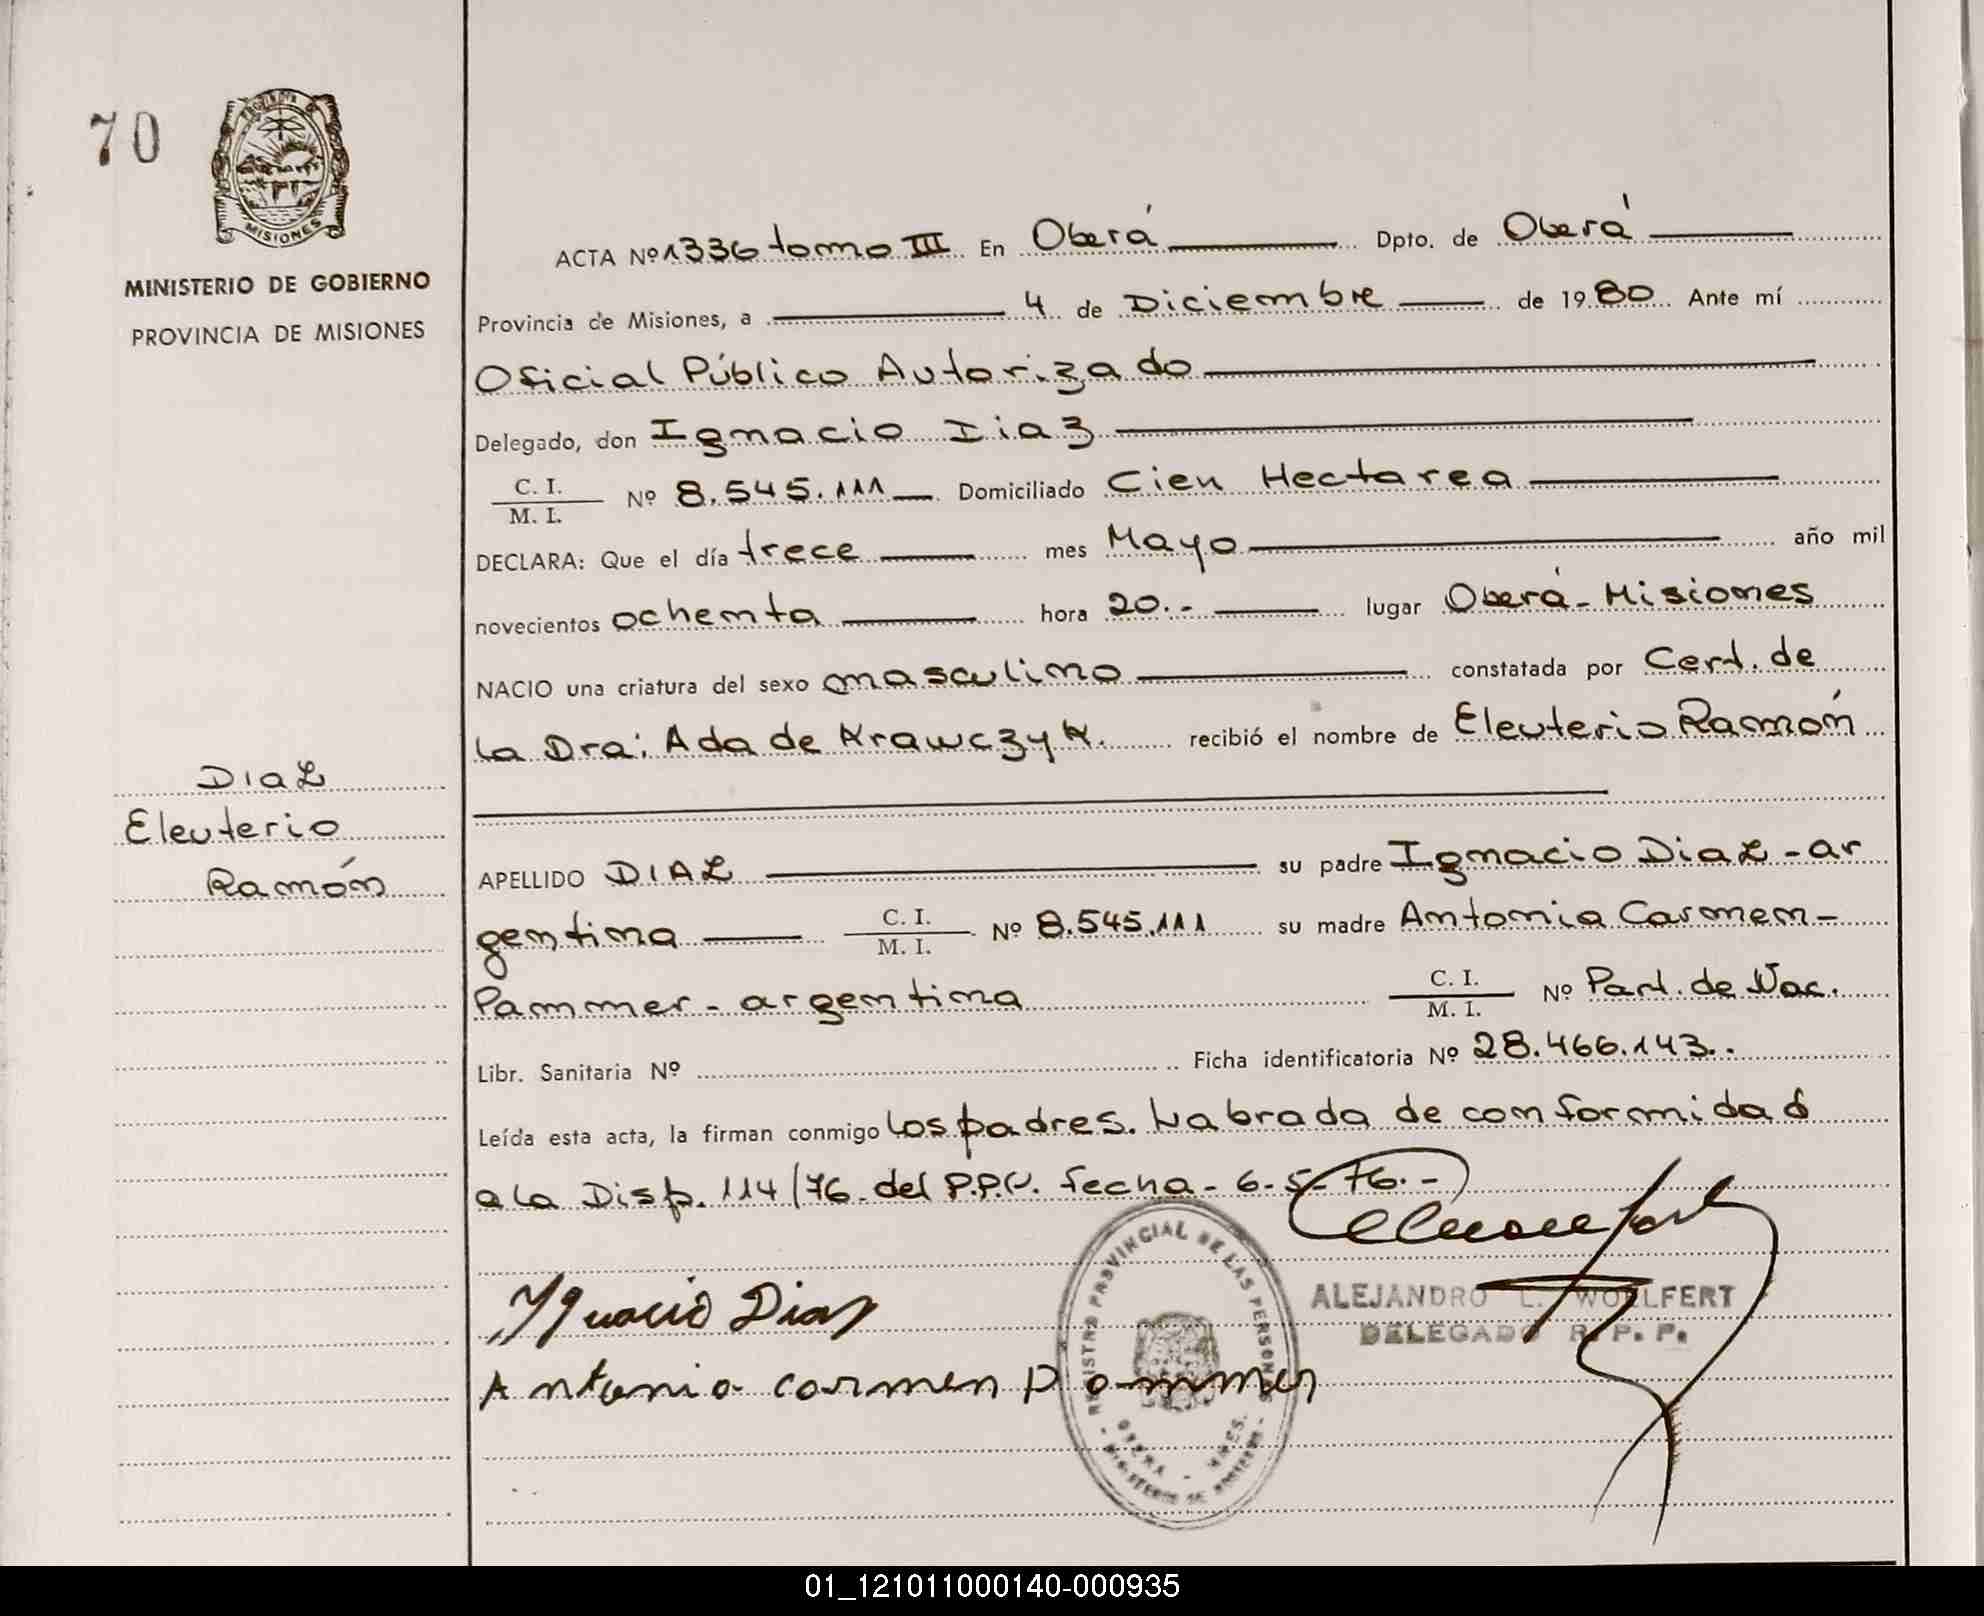 70
PROVINCIA DE
MISIONES
MINISTERIO DE GOBIERNO
PROVINCIA DE MISIONES
ACTA Nº 1336 tomo III En Oberá Dpto. de Oberá
Provincia de Misiones, a 4 de Diciembre de 1980 Ante mí
Oficial Público Autorizado
Delegado, don Ignacio Diaz
C. I.
M. I. Nº 8.545.111 Domiciliado Cien Hectarea
DECLARA: Que el día trece mes Mayo año mil
novecientos ochenta hora 20.- lugar Oberá - Misiones
NACIO una criatura del sexo masculino constatada por Cert. de
la Dra: Ada de Krawczyk. recibió el nombre de Eleuterio Ramón
DIAZ
Eleuterio
Ramón
APELLIDO DIAZ su padre Ignacio Diaz - ar
gentina C. I.
M. I. Nº 8.545.111 su madre Antonia Carmen -
Pammer - argentina C. I.
M. I. Nº Part. de Nac.
Libr. Sanitaria Nº Ficha identificatoria Nº 28.466.143..
Leída esta acta, la firman conmigo los padres. Labrada de conformidad
a la Disp. 114/76 del fecha - 6-5-76.-
Ignacio Diaz
Antonia Carmen Pammer
REGISTRO PROVINCIAL DE LAS PERSONAS
OBERA - MNES.
MINISTERIO DE GOBIERNO
ALEJANDRO L. WOLLFERT
DELEGADO R. P. P.
01_121011000140-000935